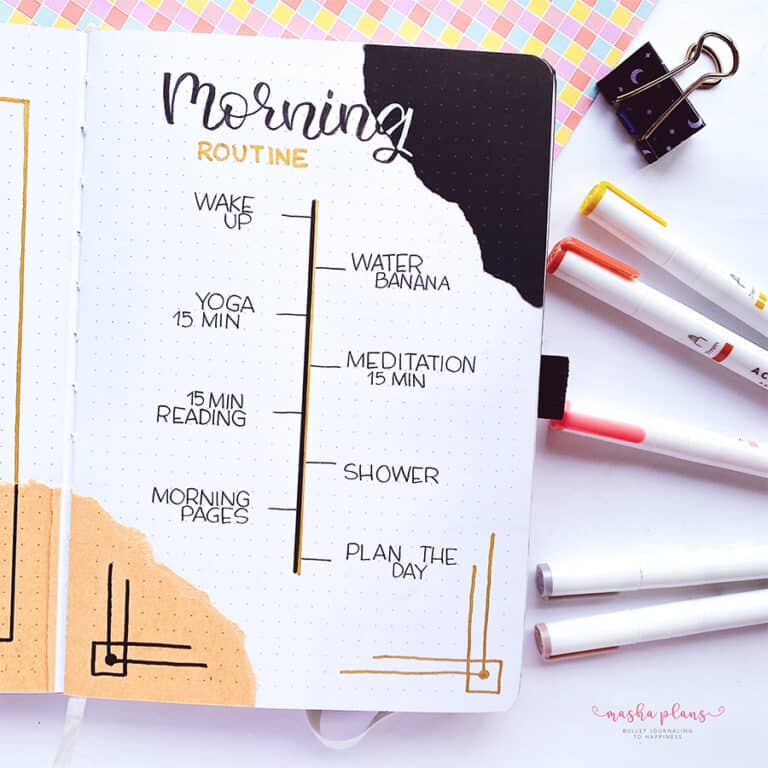 Morning
ROUTINE
WAKE
UP
WATER
BANANA
YOGA
15 MIN
MEDITATION
15 MIN
15 MIN
READING
SHOWER
MORNING
PAGES
PLAN THE
DAY
masha plans
BULLET JOURNALING
TO HAPPINESS